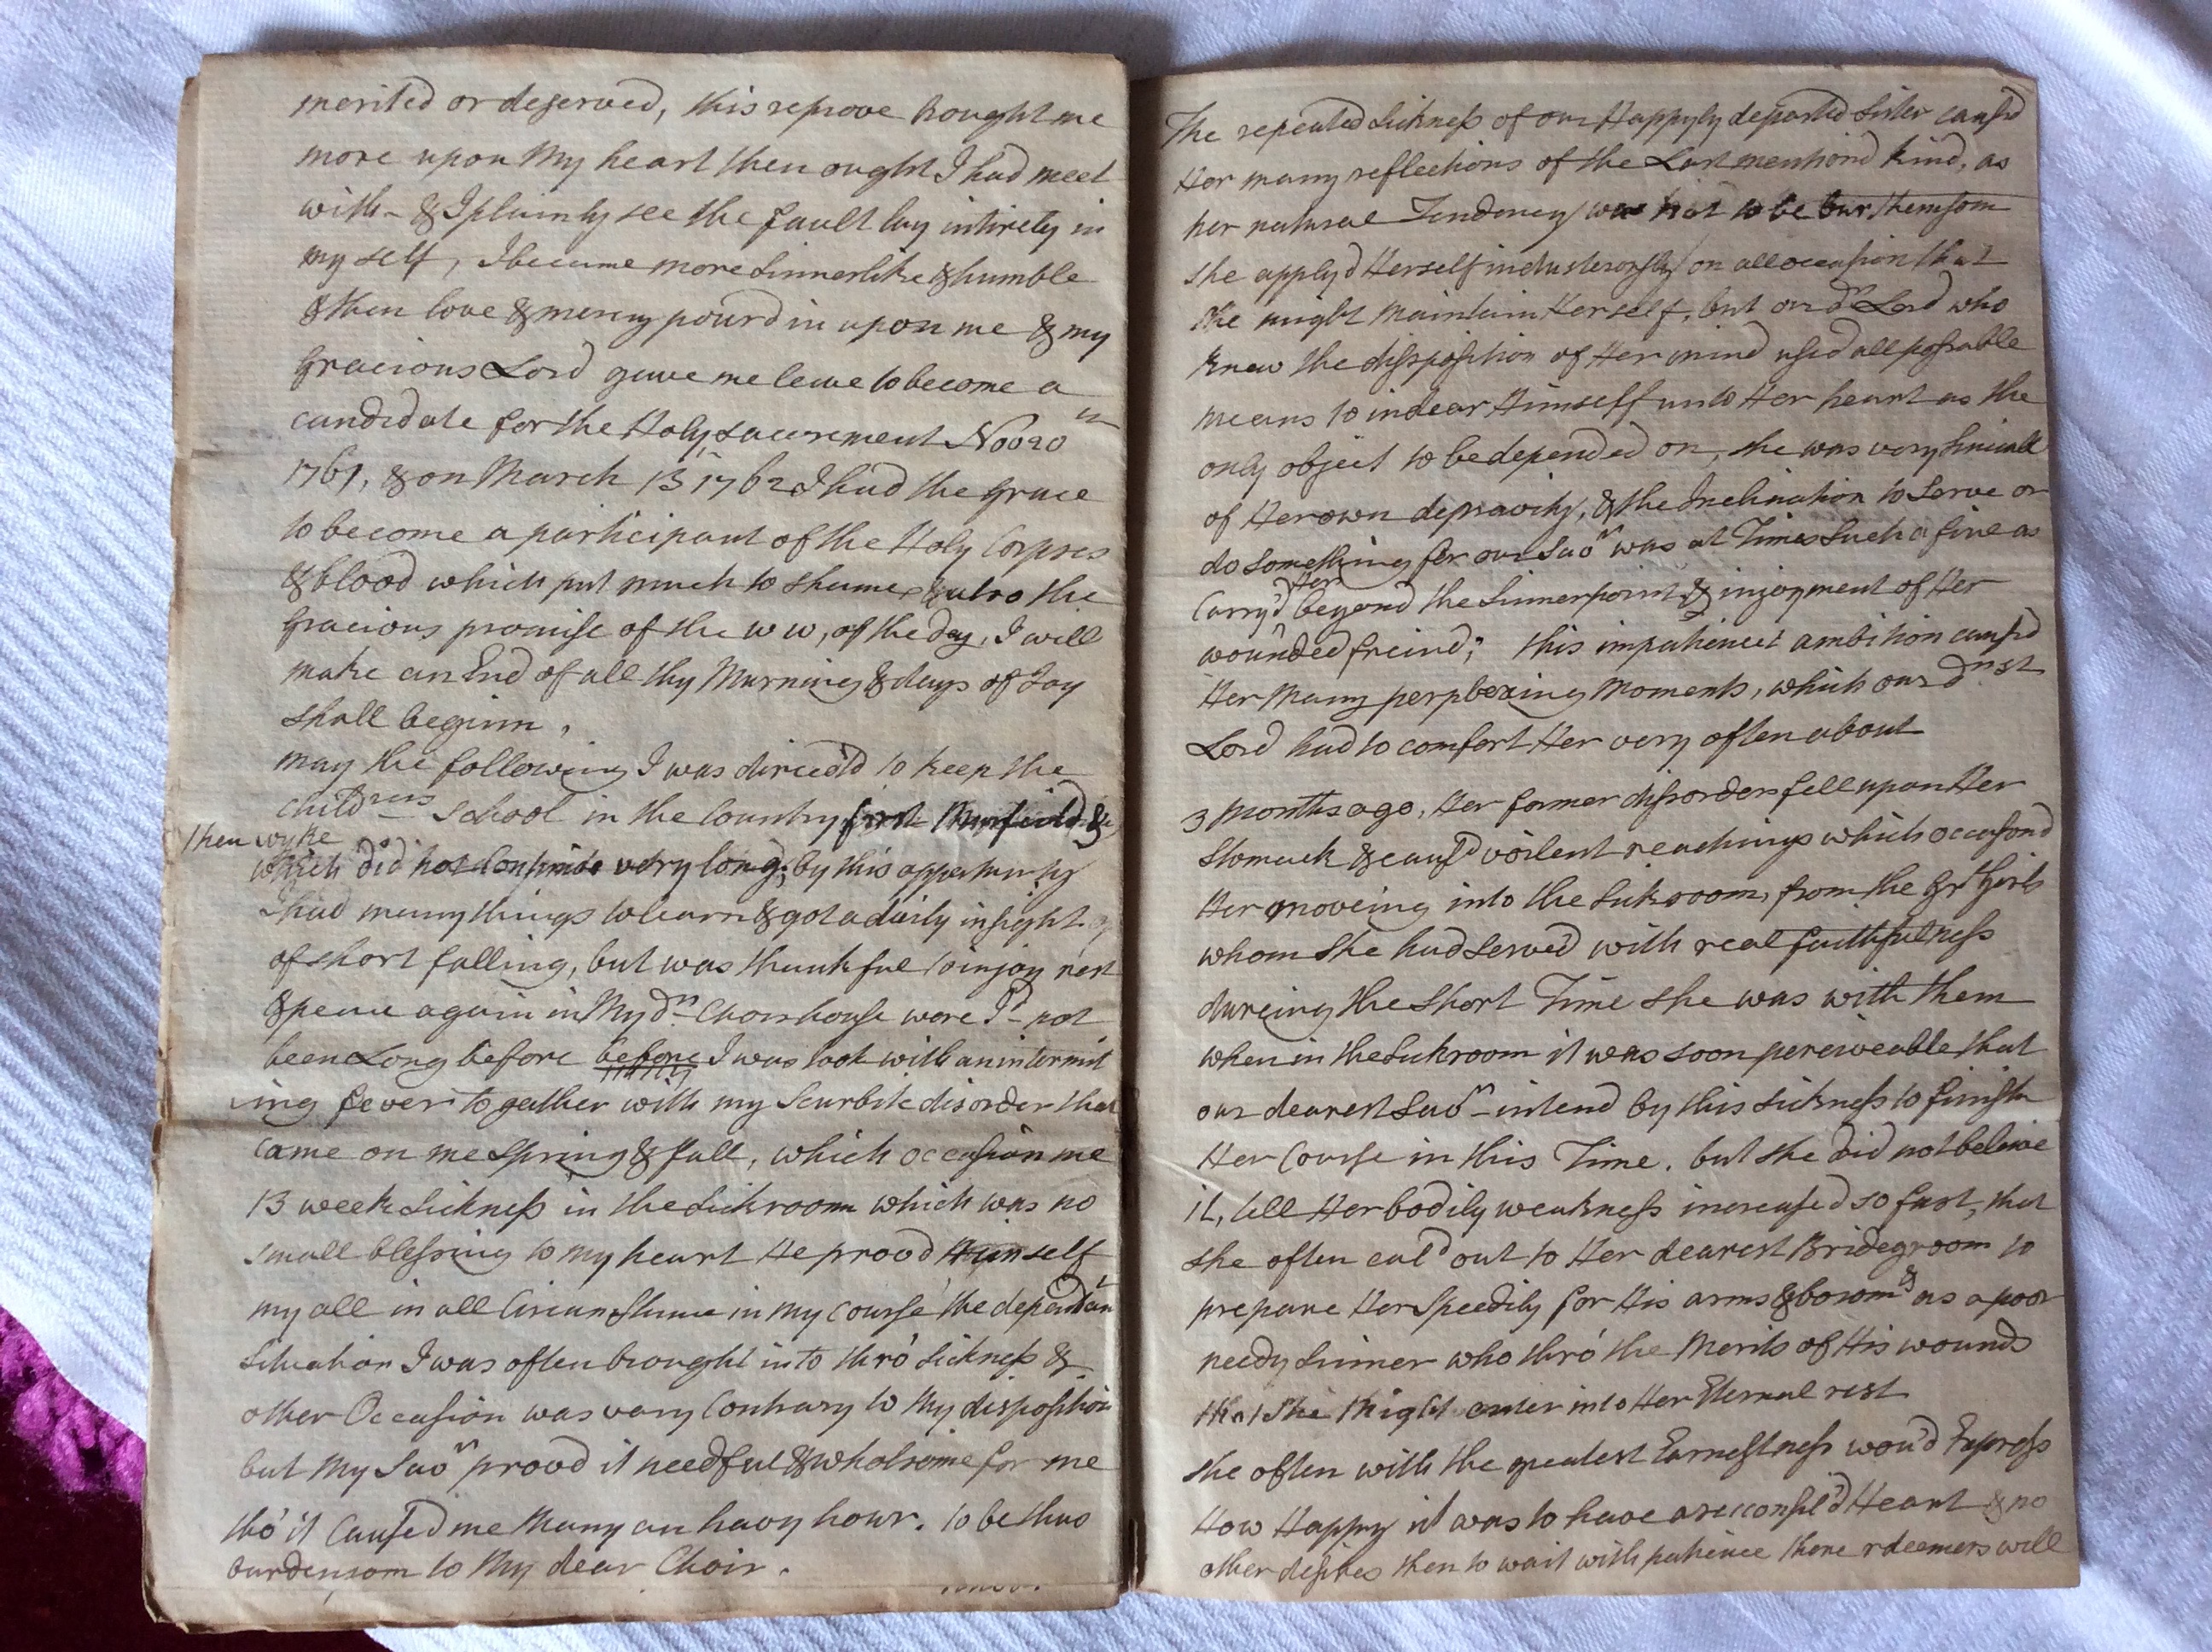 merited or deserved, this reprove brought me
more upon My heart then ought I had meet
with - & I plainly see the fault lay intirely in
my self, I became more Sinnerlike & humble
& then love & mercy pour'd in upon me & my
Gracious Lord gave me leave to become a
candidate for the Holy Sacrement Nov 20th
1761, & on March 13 1762 I had the grace
to become a participant of the Holy Corpses
& blood which put much to shame, & also the
Gracious promise of the w w, of the day, I will
make an End of all thy Murning & days of Joy
shall beginn,
may the following I was directd to keep the
childrens School in the Country first &
then wyke
which did not Continue very long; by this oppertunity
I had many things to learn & got a daily insight
of short falling, but was thankful to injoy rest
& peace again in My dr Choirhouse were I'd not
been Long before before I was took with an intermit
ing fever together with my Scurbitc disorder that
came on me Spring & fall, which occasion me
13 week Sickness in the Sickroom which was no
small blessing to my heart He provd Himself
my all in all Circumstance in my Course the dependant
Situation I was often brought into thro' Sickness &
other Occasion was vary Contrary to My disposition
but My Savr provd it needful & wholsome for me
tho' it Caused me Many an havy hour. to be thus
burdensom to My dear Choir.
The repeated Sickness of our Happyly departed Sister causd
Her many reflections of the Last mentiond kind, as
her natural Tendency was not to be burthensom
she apply'd Herself industerously on all occasion that
she might Maintain Herself, but our dr Lord who
knew the dissposition of Her mind used all possable
means to indear Himself unto Her heart as the
only object to be depended on, she was very
of Her own depravity, & the Inclination to Serve or
do something for our Savr was at Times Such a fire as
Her
Carry'd beyond the Sinnerpoint & injoyment of Her
wounded freind; this impatienct ambition causd
Her Many perplexing Moments, which our drst
Lord had to comfort Her very often about
3 Months ago, Her former dissorders fell upon Her
Stomack & causd voilent reachings which occasond
Her moveing into the Sickroom, from the Grt Girls
whom She had Served with real faithfulness
dureing the Short Time She was with them
when in the Sickroom it was soon perceiveable that
our dearest Savr - intend by this Sickness to finish
Her Course in this Time. but she did not beleive
it, till Her bodily weakness increased so fast, that
she often cal'd out to Her dearest Bridegroom to
prepare Her Speedily for His arms & bosom & as a poor
needy Sinner who thro' the Merits of His wounds
that She Might enter into Her Eternal rest
she often with the greatest Earnestness wou'd Express
How Happy it was to have a reconsil'd Heart & no
other desires then to wait with patience there rdeemers will